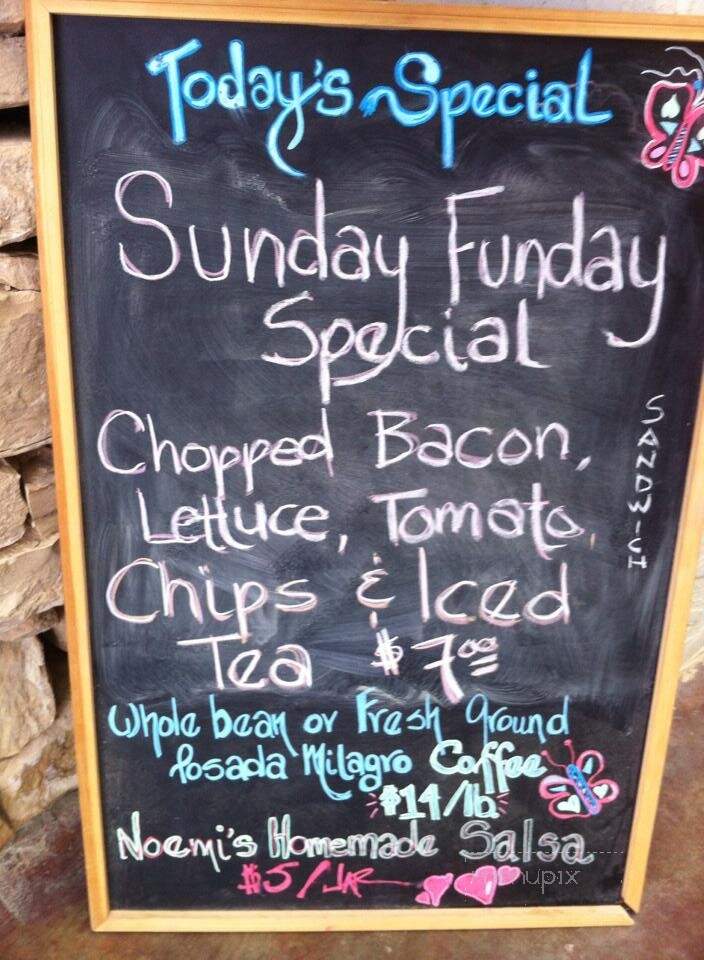 Today's Special
Sunday Funday
Special
Chopped Bacon,
Lettuce, Tomato,
SANDWICH
Chips & Iced
Tea $7.00
Whole bean or Fresh ground
Posada Milagro Coffee
$14/lb
Noemi's Homemade Salsa
$5/JAR